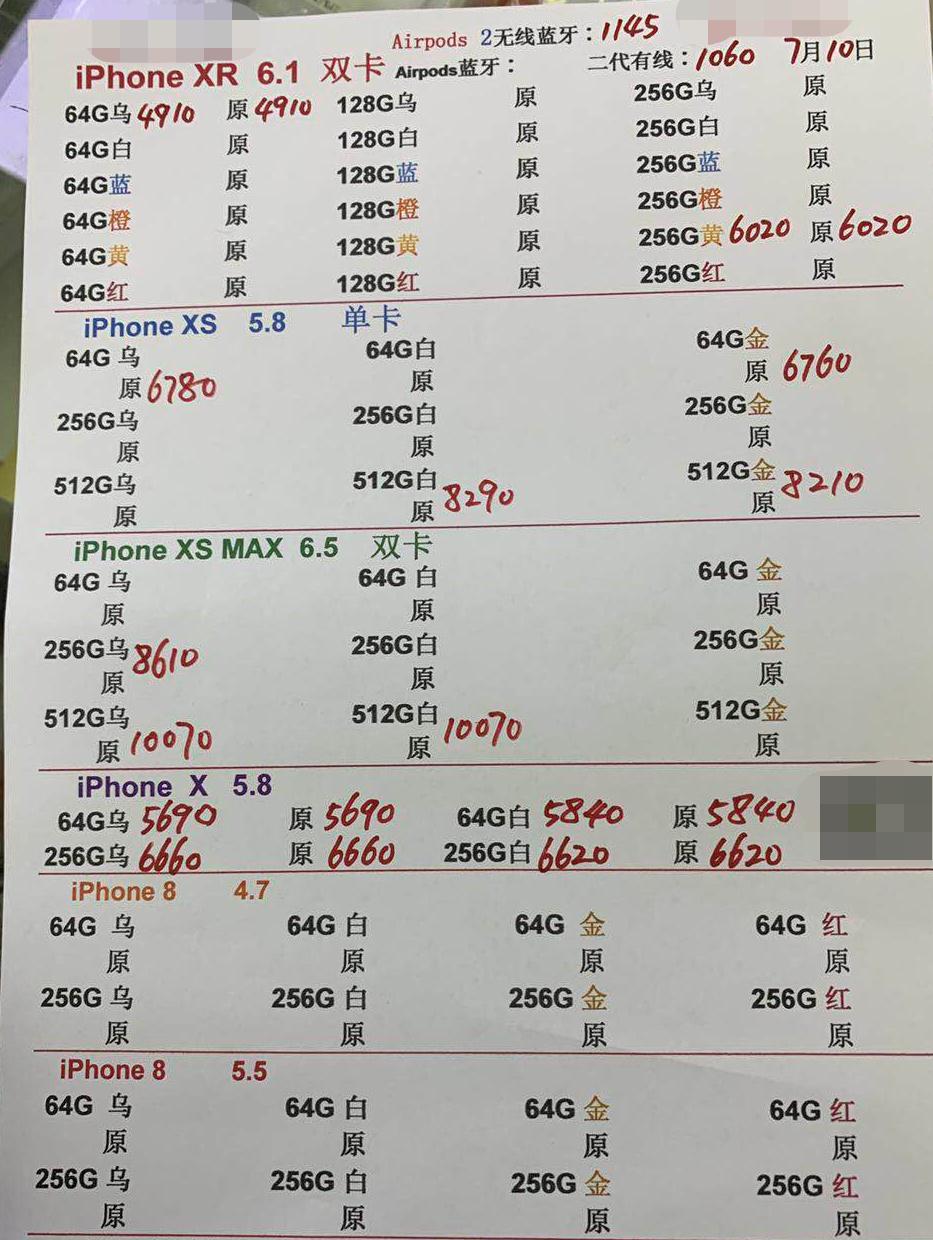 Airpods 2无线蓝牙：1145
iPhone XR 6.1 双卡 Airpods蓝牙： 二代有线：1060 7月10日
64G乌4910 原4910 128G乌 原 256G乌 原
64G白 原 128G白 原 256G白 原
64G蓝 原 128G蓝 原 256G蓝 原
64G橙 原 128G橙 原 256G橙 原
64G黄 原 128G黄 原 256G黄6020 原6020
64G红 原 128G红 原 256G红 原
iPhone XS 5.8 单卡
64G 乌 64G白 64G金
原6780 原 原 6760
256G乌 256G白 256G金
原 原 原
512G乌 512G白 512G金
原 原 8290 原 8210
iPhone XS MAX 6.5 双卡
64G 乌 64G 白 64G 金
原 原 原
256G乌 8610 256G白 256G金
原 原 原
512G乌 512G白 512G金
原 10070 原 10070 原
iPhone X 5.8
64G乌 5690 原 5690 64G白 5840 原 5840
256G乌 6660 原 6660 256G白 6620 原 6620
iPhone 8 4.7
64G 乌 64G 白 64G 金 64G 红
原 原 原 原
256G 乌 256G 白 256G 金 256G 红
原 原 原 原
iPhone 8 5.5
64G 乌 64G 白 64G 金 64G 红
原 原 原 原
256G 乌 256G 白 256G 金 256G 红
原 原 原 原